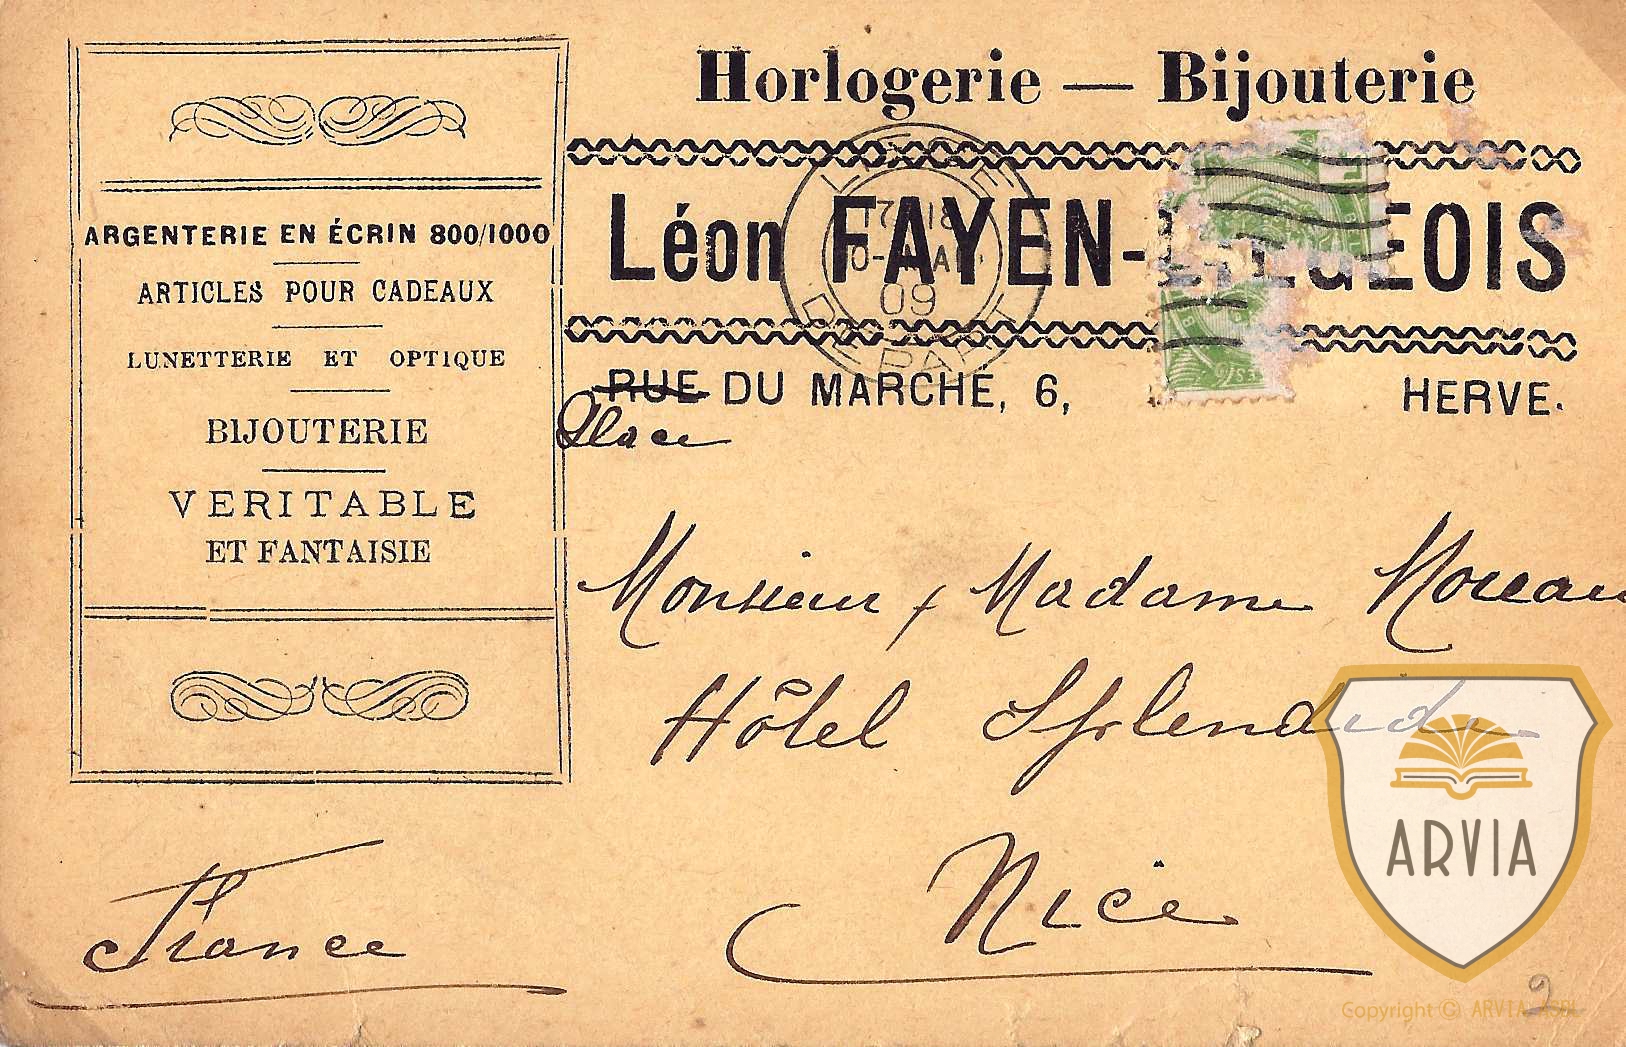 Horlogerie — Bijouterie
Léon FAYEN-LIÉGEOIS
RUE DU MARCHÉ, 6, HERVE.
Place
ARGENTERIE EN ÉCRIN 800/1000
ARTICLES POUR CADEAUX
LUNETTERIE ET OPTIQUE
BIJOUTERIE
VERITABLE
ET FANTAISIE
09
DEPART
Monsieur & Madame Moreau
Hôtel Splendide
Nice
France
ARVIA
Copyright © ARVIA ASBL
2